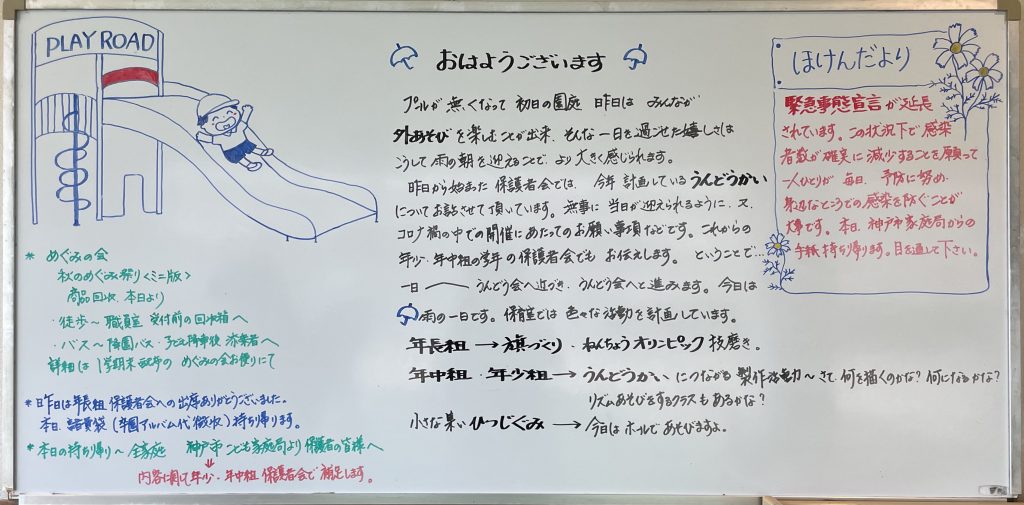 PLAY ROAD
* めぐみの会
秋のめぐみ祭り<ミニ版>
商品回収、本日より
・徒歩〜職員室 受付前の回収箱へ
・バス〜降園バス 子ども降車後 添乗者へ
詳細は1学期末配布の めぐみの会お便りにて
*昨日は年長組保護者会への出席ありがとうございました。
本日、諸費袋(卒園アルバム代徴収)持ち帰ります。
*本日の持ち帰り〜全家庭 神戸市こども家庭局より保護者の皆様へ
内容に関して年少・年中組保護者会で補足します。
おはようございます
プールが無くなって 初日の園庭 昨日は みんなが
外あそびを楽しむことが出来、そんな一日を過ごせた嬉しさは
こうして雨の朝を迎えることで、より大きく感じられます。
昨日から始まった保護者会では、今年計画しているうんどうかい
についてお話させて頂いています。無事に当日が迎えられるように、又、
コロナ禍の中での開催にあたってのお願い事項などです。これからの
年少、年中組の学年の保護者会でも お伝えします。ということで…
一日一 うんどう会へ近づき、うんどう会へと進みます。今日は
雨の一日です。保育室では 色々な活動を計画しています。
年長組→旗づくり・ねんちょうオリンピック技磨き。
年中組・年少組→うんどうかいにつながる製作活動〜さて、何を描くのかな?何になるかな?
リズムあそびをするクラスもあるかな?
小さな集い ひつじぐみ→今日はホールであそびますよ。
ほけんだより
緊急事態宣言が延長
されています。この状況下で感染
者数が確実に減少することを願って
一人ひとりが 毎日、予防に努め、
などでの感染を防ぐことが
大事です。本日、神戸市家庭局からの
手紙持ち帰ります。目を通して下さい。